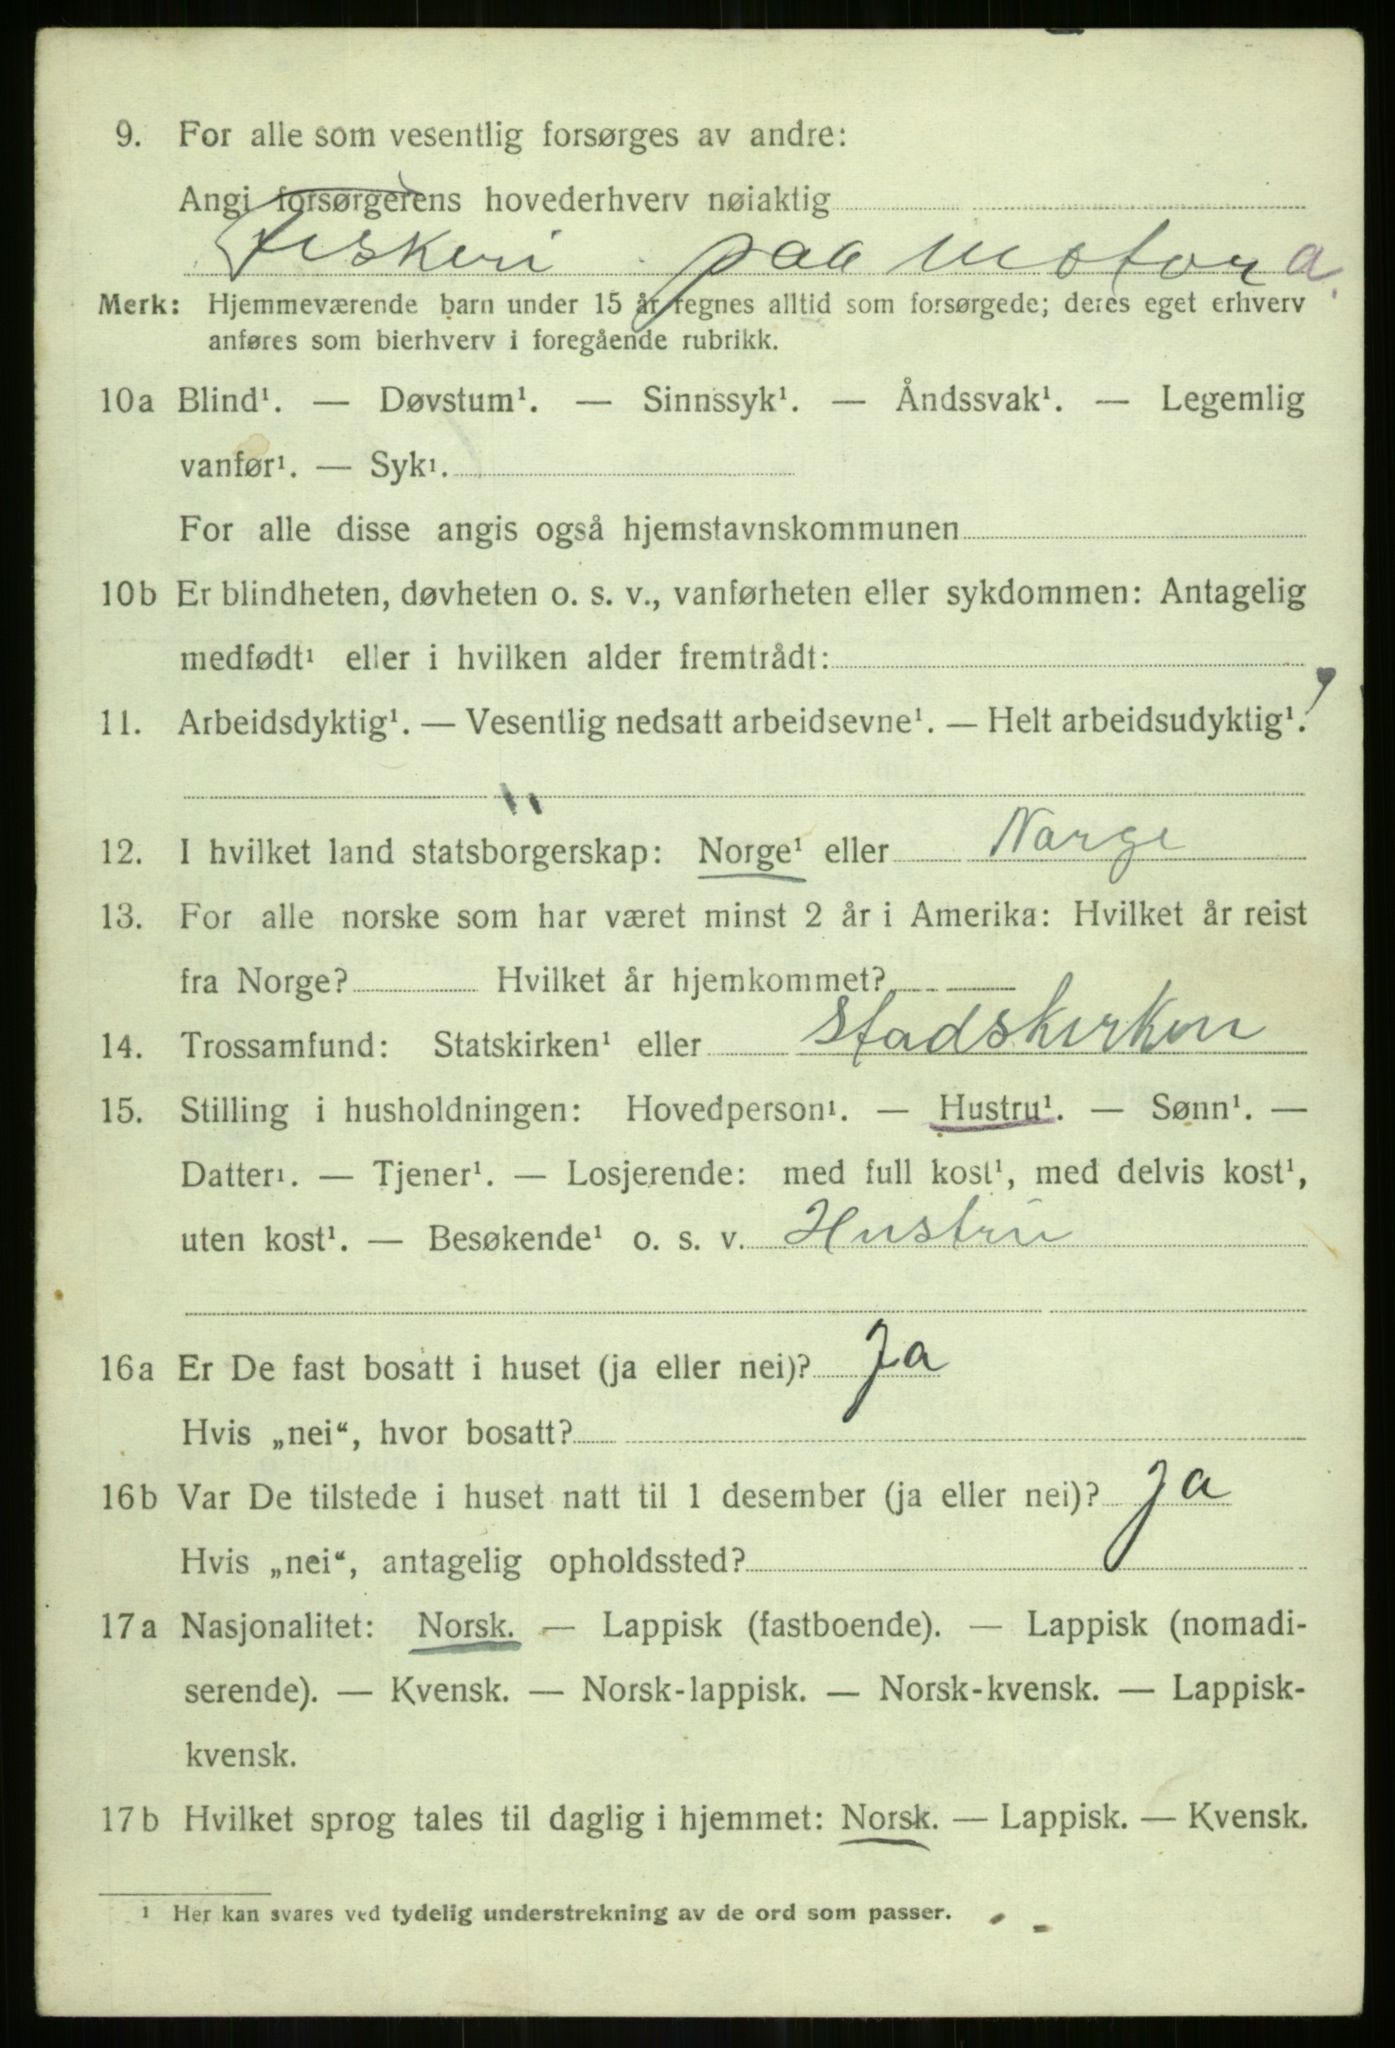 9. For alle som vesentlig forsørges av andre:
Angi forsørgerens hovederhverv nøiaktig
Fiskeri paa motor a.
Merk: Hjemmeværende barn under 15 år regnes alltid som forsørgede; deres eget erhverv
anføres som bierhverv i foregående rubrikk.
10a Blind¹. — Døvstum¹. — Sinnssyk¹. — Åndssvak¹. — Legemlig
vanfør¹. — Syk¹.
For alle disse angis også hjemstavnskommunen
10b Er blindheten, døvheten o. s. v., vanførheten eller sykdommen: Antagelig
medfødt¹ eller i hvilken alder fremtrådt:
11. Arbeidsdyktig¹. — Vesentlig nedsatt arbeidsevne¹. — Helt arbeidsudyktig¹.
12. I hvilket land statsborgerskap: Norge¹ eller Norge
13. For alle norske som har været minst 2 år i Amerika: Hvilket år reist
fra Norge? Hvilket år hjemkommet?
14. Trossamfund: Statskirken¹ eller Stadskirken
15. Stilling i husholdningen: Hovedperson¹. — Hustru¹. — Sønn¹. —
Datter¹. — Tjener¹. — Losjerende: med full kost¹, med delvis kost¹,
uten kost¹. — Besøkende¹ o. s. v. Hustru
16a Er De fast bosatt i huset (ja eller nei)? Ja
Hvis „nei“, hvor bosatt?
16b Var De tilstede i huset natt til 1 desember (ja eller nei)? Ja
Hvis „nei“, antagelig opholdssted?
17a Nasjonalitet: Norsk. — Lappisk (fastboende). — Lappisk (nomadi-
serende). — Kvensk. — Norsk-lappisk. — Norsk-kvensk. — Lappisk-
kvensk.
17b Hvilket sprog tales til daglig i hjemmet: Norsk. — Lappisk. — Kvensk.
¹ Her kan svares ved tydelig understrekning av de ord som passer.